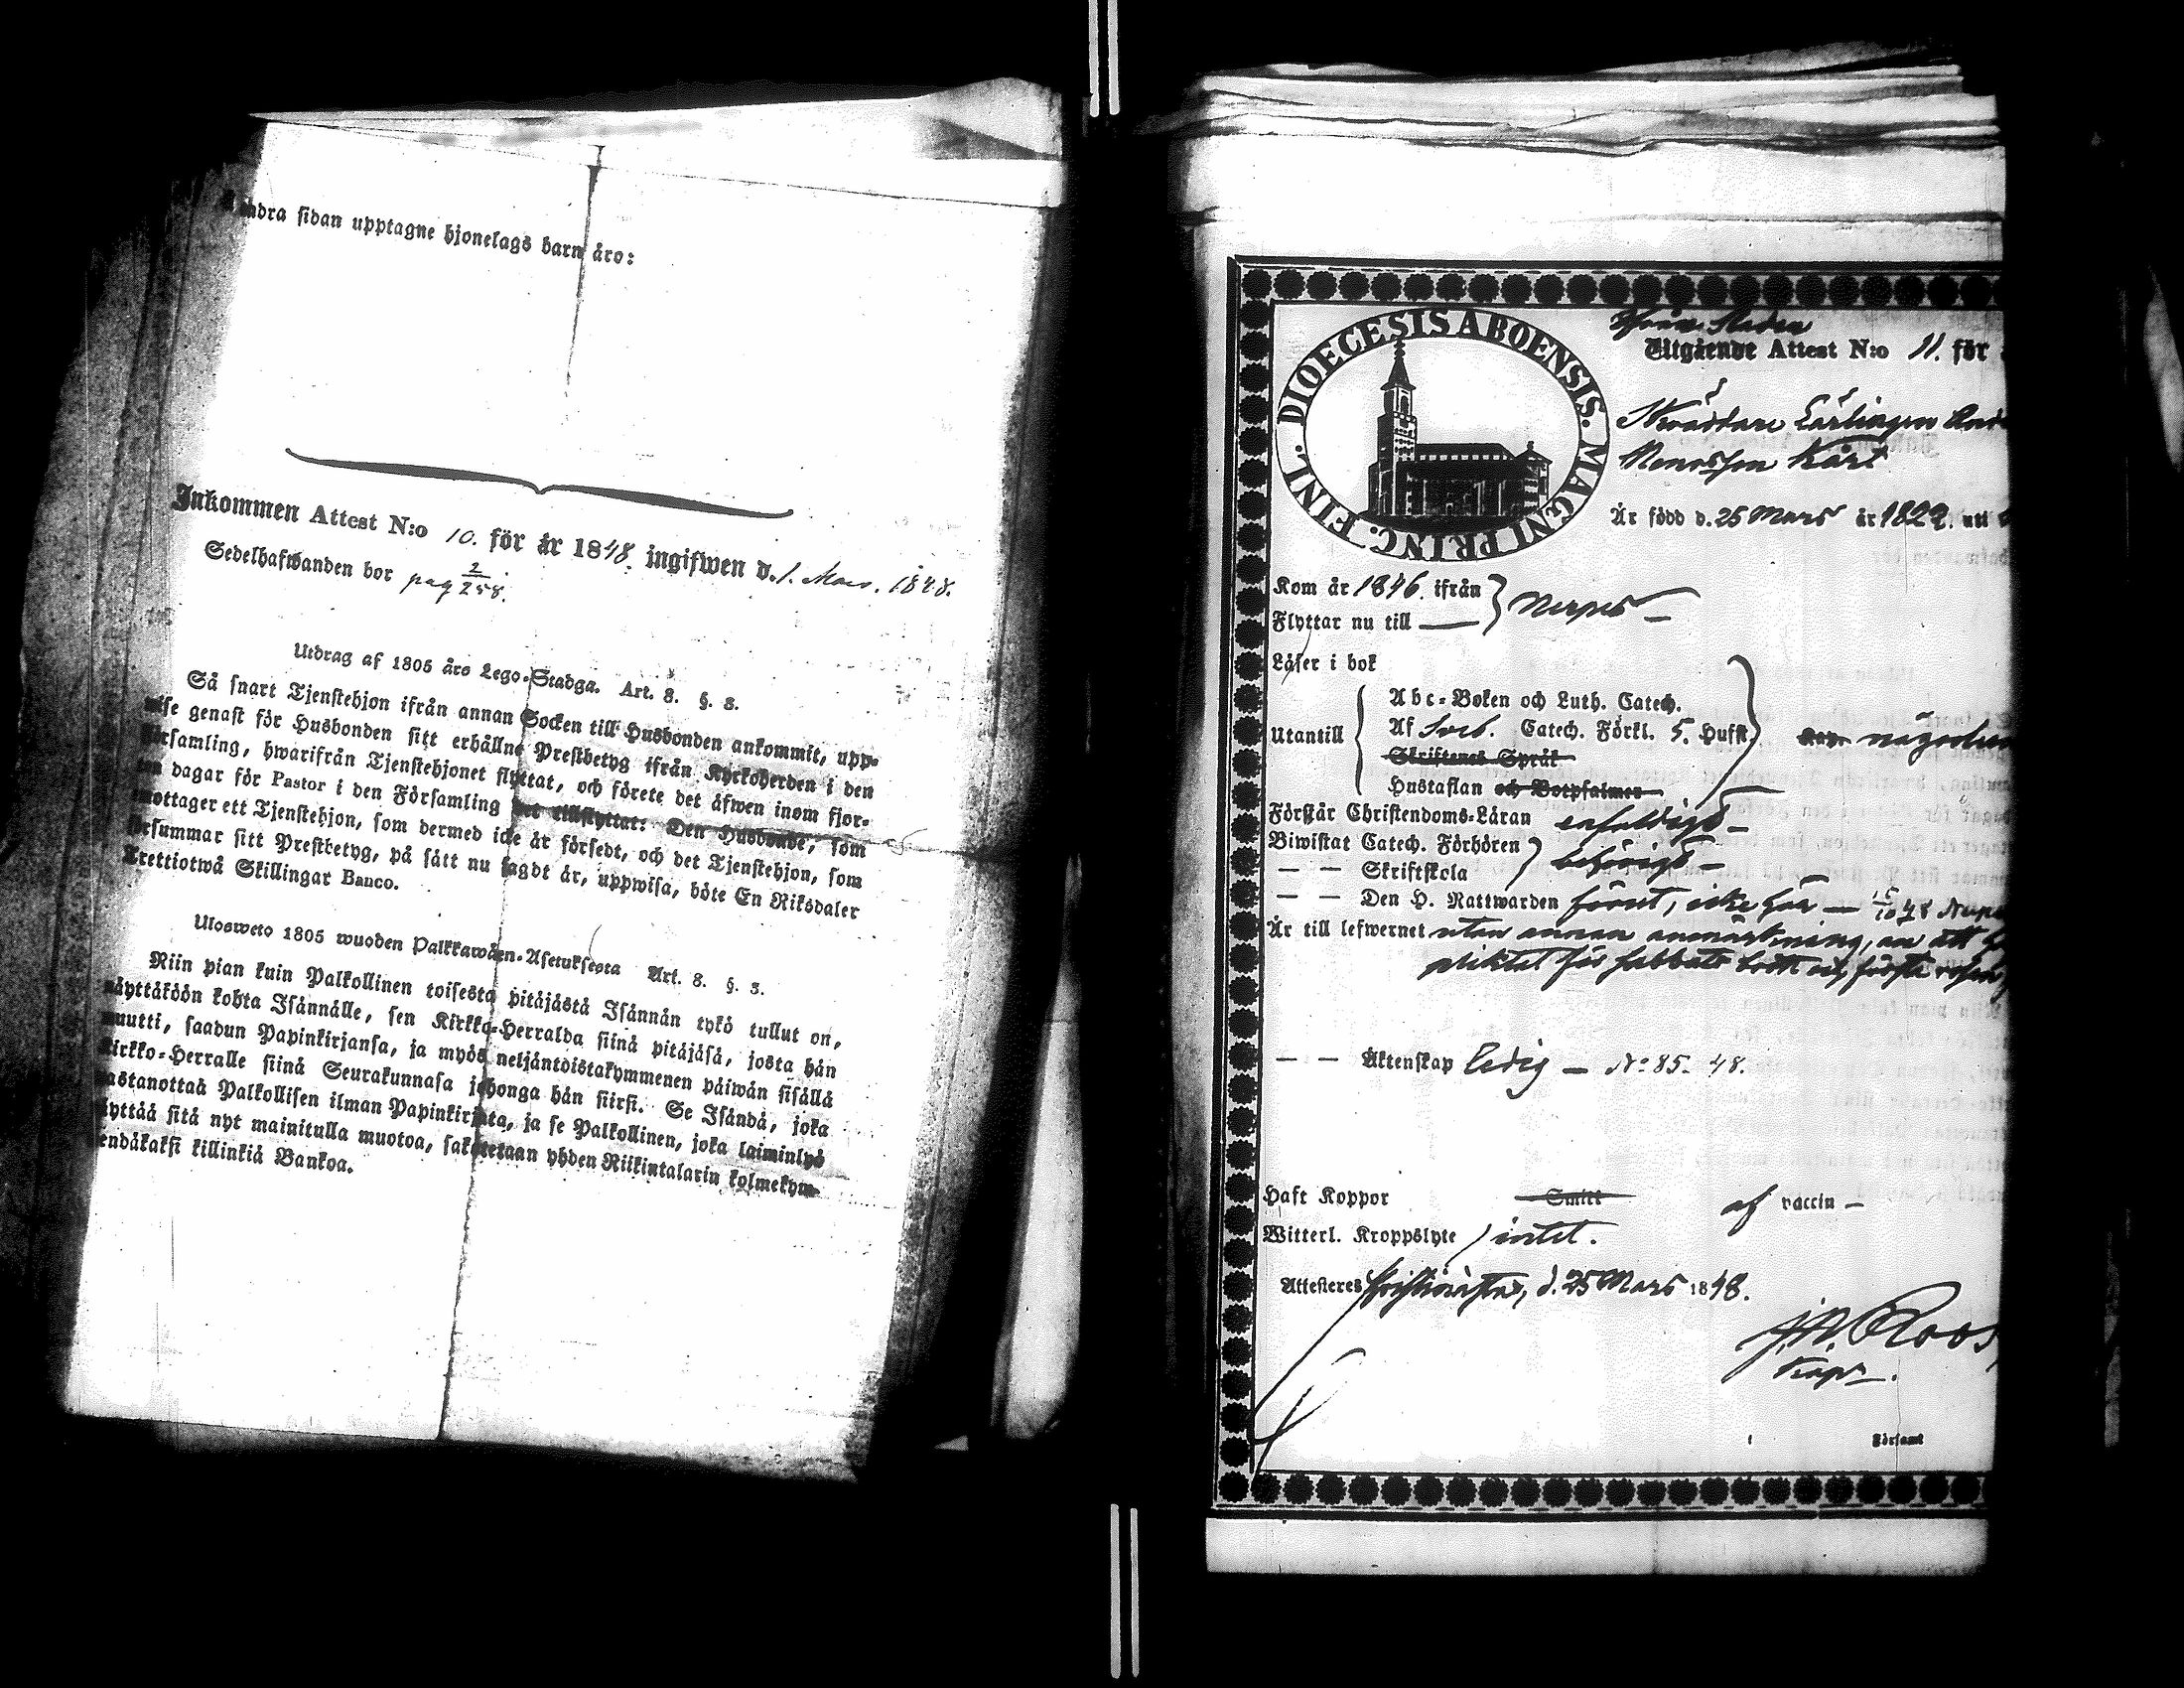 andra sidan upptagne hjonelags barn äro:
Inkommen Attest N:o 10. för år 1848. ingifwen d. 1. Mars. 1848.
Sedelhafwanden bor pag 2/258.
Utdrag af 1805 års Lego-Stadga. Art. 8. §. 3.
Så snart Tjenstehjon ifrån annan Socken till Husbonden ankommit, upp-
wise genast för Husbonden sitt erhållne Prestbetyg ifrån Kyrkoherden i den
Församling, hwarifrån Tjenstehjonet flyttat, och förete det äfwen inom fjor-
ton dagar för Pastor i den Församling det tillflyttat: Den Husbonde, som
emottager ett Tjenstehjon, som dermed icke är försedt, och det Tjenstehjon, som
försummar sitt Prestbetyg, på sätt nu sagdt är, uppwisa, böte En Riksdaler
Trettiotwå Skillingar Banco.
Ulosweto 1805 wuoden Palkkawäen-Asetuksesta Art. 8. §. 3.
Niin pian kuin Palkollinen toisesta pitäjästä Isännän tykö tullut on,
näyttäköön kohta Isännälle, sen Kirkko-Herralda siinä pitäjäsä, josta hän
muutti, saadun Papinkirjansa, ja myös neljäntoistakymmenen päiwän sisällä
Kirkko-Herralle siinä Seurakunnasa johonga hän siirsi. Se Isändä, joka
wastanottaa Palkollisen ilman Papinkirjata, ja se Palkollinen, joka laiminlyö
näyttää sitä nyt mainitulla muotoa, sakotetaan yhden Riikintalarin kolmekym-
mendäkaksi killinkiä Bankoa.
DIOECESIS ABOENSIS. MAGNI PRINC. FINL.
Från Staden
Utgående Attest N:o 11. för
Skräddare Lärlingen
Kårt
Är född d. 25 Mars år 1822. uti
Kom år 1846. ifrån
Flyttar nu till — Nerpes —
Läser i bok
Abc-Boken och Luth. Catech.
Utantill Af Sveb. Catech. Förkl. 5. Hufst.
någorlun
Skriftenes Språk
Hustaflan och Botpsalmer
Förstår Christendoms-Läran enfaldigt —
Biwistat Catech. Förhören
— — Skriftskola behörigt —
— — Den H. Nattwarden förut, icke här —
Är till lefwernet utan annan anmärkning, än att
pliktat för sabbats brott första resan
— — Äktenskap ledig — No 85. 48.
Haft Koppor Smitt af vaccin —
Witterl. Kroppslyte intet.
Attesteres Kristinestad, d. 25 Mars 1848.
J. N. Roos,
Kapn.
i Församl